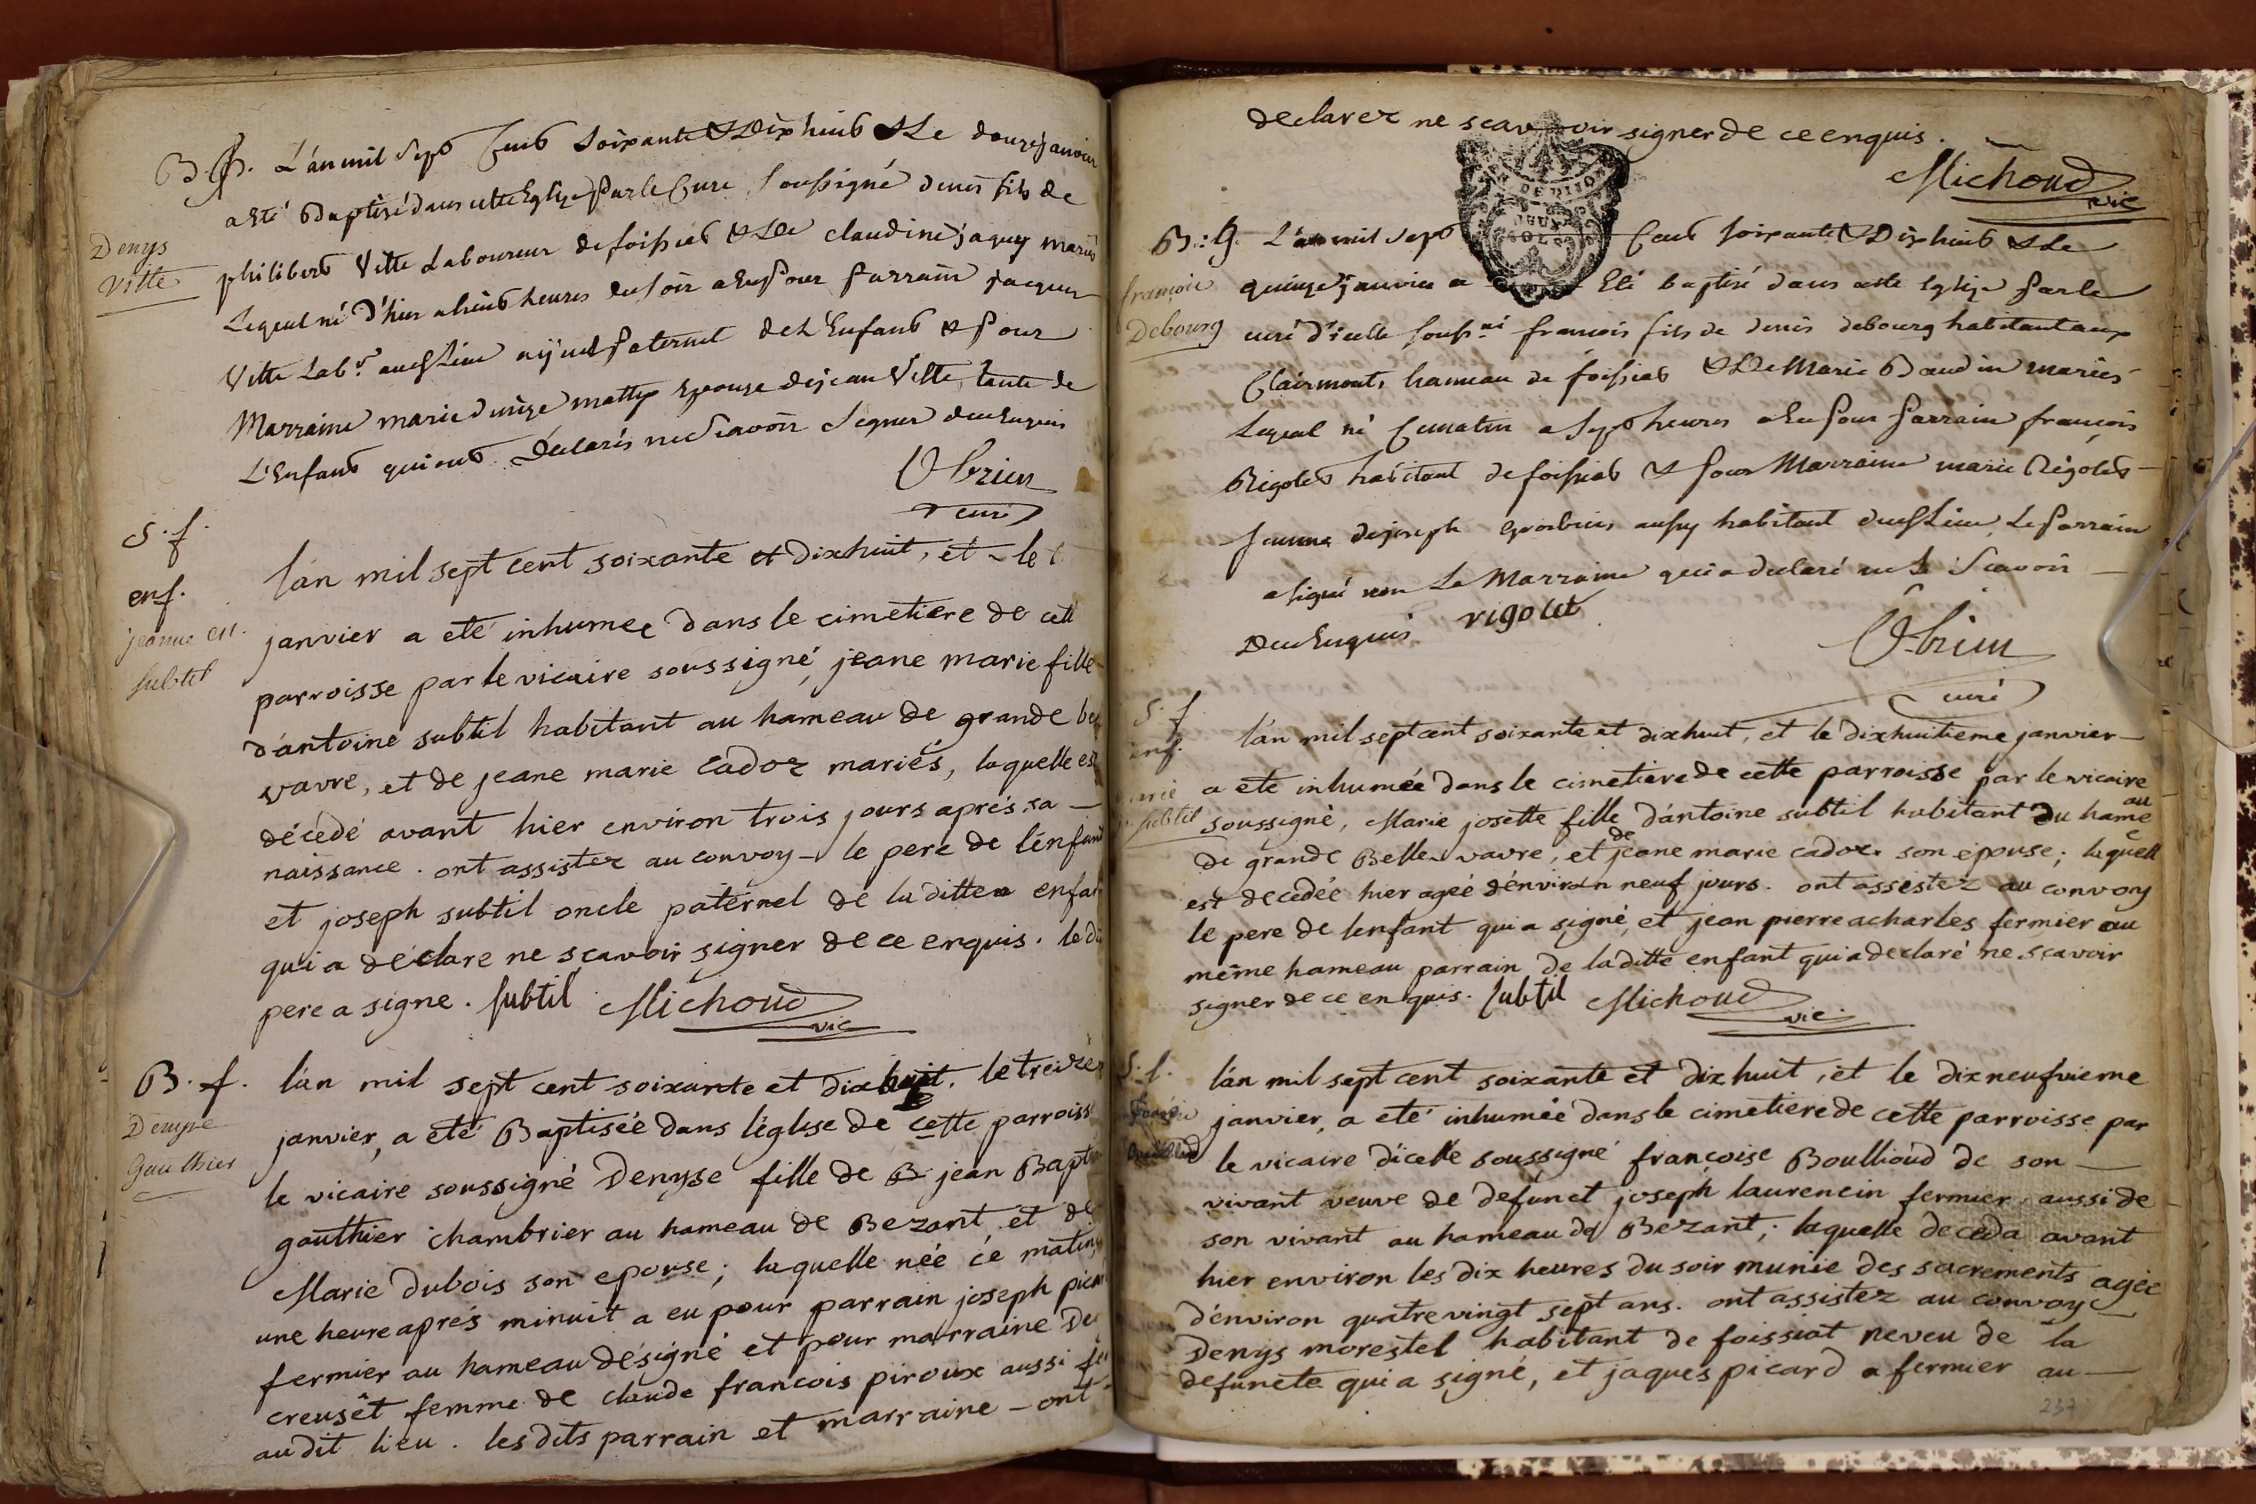 B.G. L'an mil sept Cent soixante & Dix huit & Le douze janvier
a Eté Baptisé dans cette Eglize Par le Curé soussigné denis fils de
Denys
Vitte
philibert Vitte Laboureur de foissiat & De claudine jaquy mariés
Lequel né D'hier a huit heures du soir a Eu Pour Parrain jacques
Vitte Labr. audt Lieu ayeul Paternel de L'Enfant & Pour
Marraine marie denize Epouze de jean Vitte, tante de
L'Enfant qui ont Déclarés ne Scavoir Signer de ce Enquis
Obrien
curé
S. f.
enf.
jeanne
subtil
l'an mil sept cent soixante et dixhuit, et le
janvier a eté inhumee dans le cimetiere de cett
parroisse par le vicaire soussigné, jeane marie fille
d'antoine subtil habitant au hameau de grande
vavre, et de jeane marie cadoz mariés, laquelle est
décédé avant hier environ trois jours aprés sa
naissance. ont assistez au convoy le pere de l'enfant
et joseph subtil oncle paternel de la ditte enfan
qui a déclare ne scavoir signer de ce enquis. le dit
pere a signe. subtil Michoud
vic
B. f.
Denyse
Gauthier
l'an mil sept cent soixante et dix huit, le treizie
janvier, a eté Baptisée dans l'église de cette parroiss
le vicaire soussigné Denyse fille de jean Bapti
gauthier chambrier au hameau de Bezant et de
Marie Dubois son epouse; laquelle née ce matin
une heure aprés minuit a eu pour parrain joseph
fermier au hameau désigné et pour marraine
creusêt femme de claude francois piroux aussi
au dit lieu. les dits parrain et marraine ont
declarez ne scavoir signer de ce enquis.
Michoud
vic
B. G. L'an mil Sept Cent soixante & Dix huit & Le
françois
Debourg
quinze janvier a Eté baptisé dans cette Eglize Par le
curé d'icelle souss.né francois fils de denis debourg habitant aux
Clairmonts hameau de foissiat & De Marie Baudin mariés
Lequel né Ce matin a Sept heures a Eu Pour Parrain françois
Rigolet habitant de foissiat & Pour Marraine marie Rigolet
femme de joseph aussy habitant dudt Lieu, Le Parrain
a signé non La Marraine qui a declaré ne Scavoir
De ce Enquis rigolet
Obrien
curé
S. f.
enf.
marie
subtil
l'an mil sept cent soixante et dixhuit, et le dixhuitieme janvier
a ete inhumée dans le cimetiere de cette parroisse par le vicaire
soussigné, Marie josette fille d'antoine subtil habitant du hameau
de grande Belle vavre, et de jeane marie cadoz son epouse; laquell
est decedée hier ageé d'environ neuf jours. ont assistez au convoy
le pere de l'enfant qui a signé, et jean pierre acharles fermier au
même hameau parrain de la ditte enfant qui a declaré ne scavoir
signer de ce enquis. subtil Michoud
vic.
S. f.
l'an mil sept cent soixante et dix huit, et le dixneufvieme
janvier, a eté inhumée dans le cimetiere de cette parroisse par
le vicaire d'icelle soussigné françoise Boullioud de son
vivant veuve de defunct joseph laurencin fermier aussi de
son vivant au hameau de Bezant; laquelle deceda avant
hier environ les dix heures du soir munie des sacrements ageé
d'environ quatre vingt sept ans. ont assistez au convoy
Denys morestel habitant de foissiat neveu de la
defuncte qui a signé, et jaques picard fermier au
237